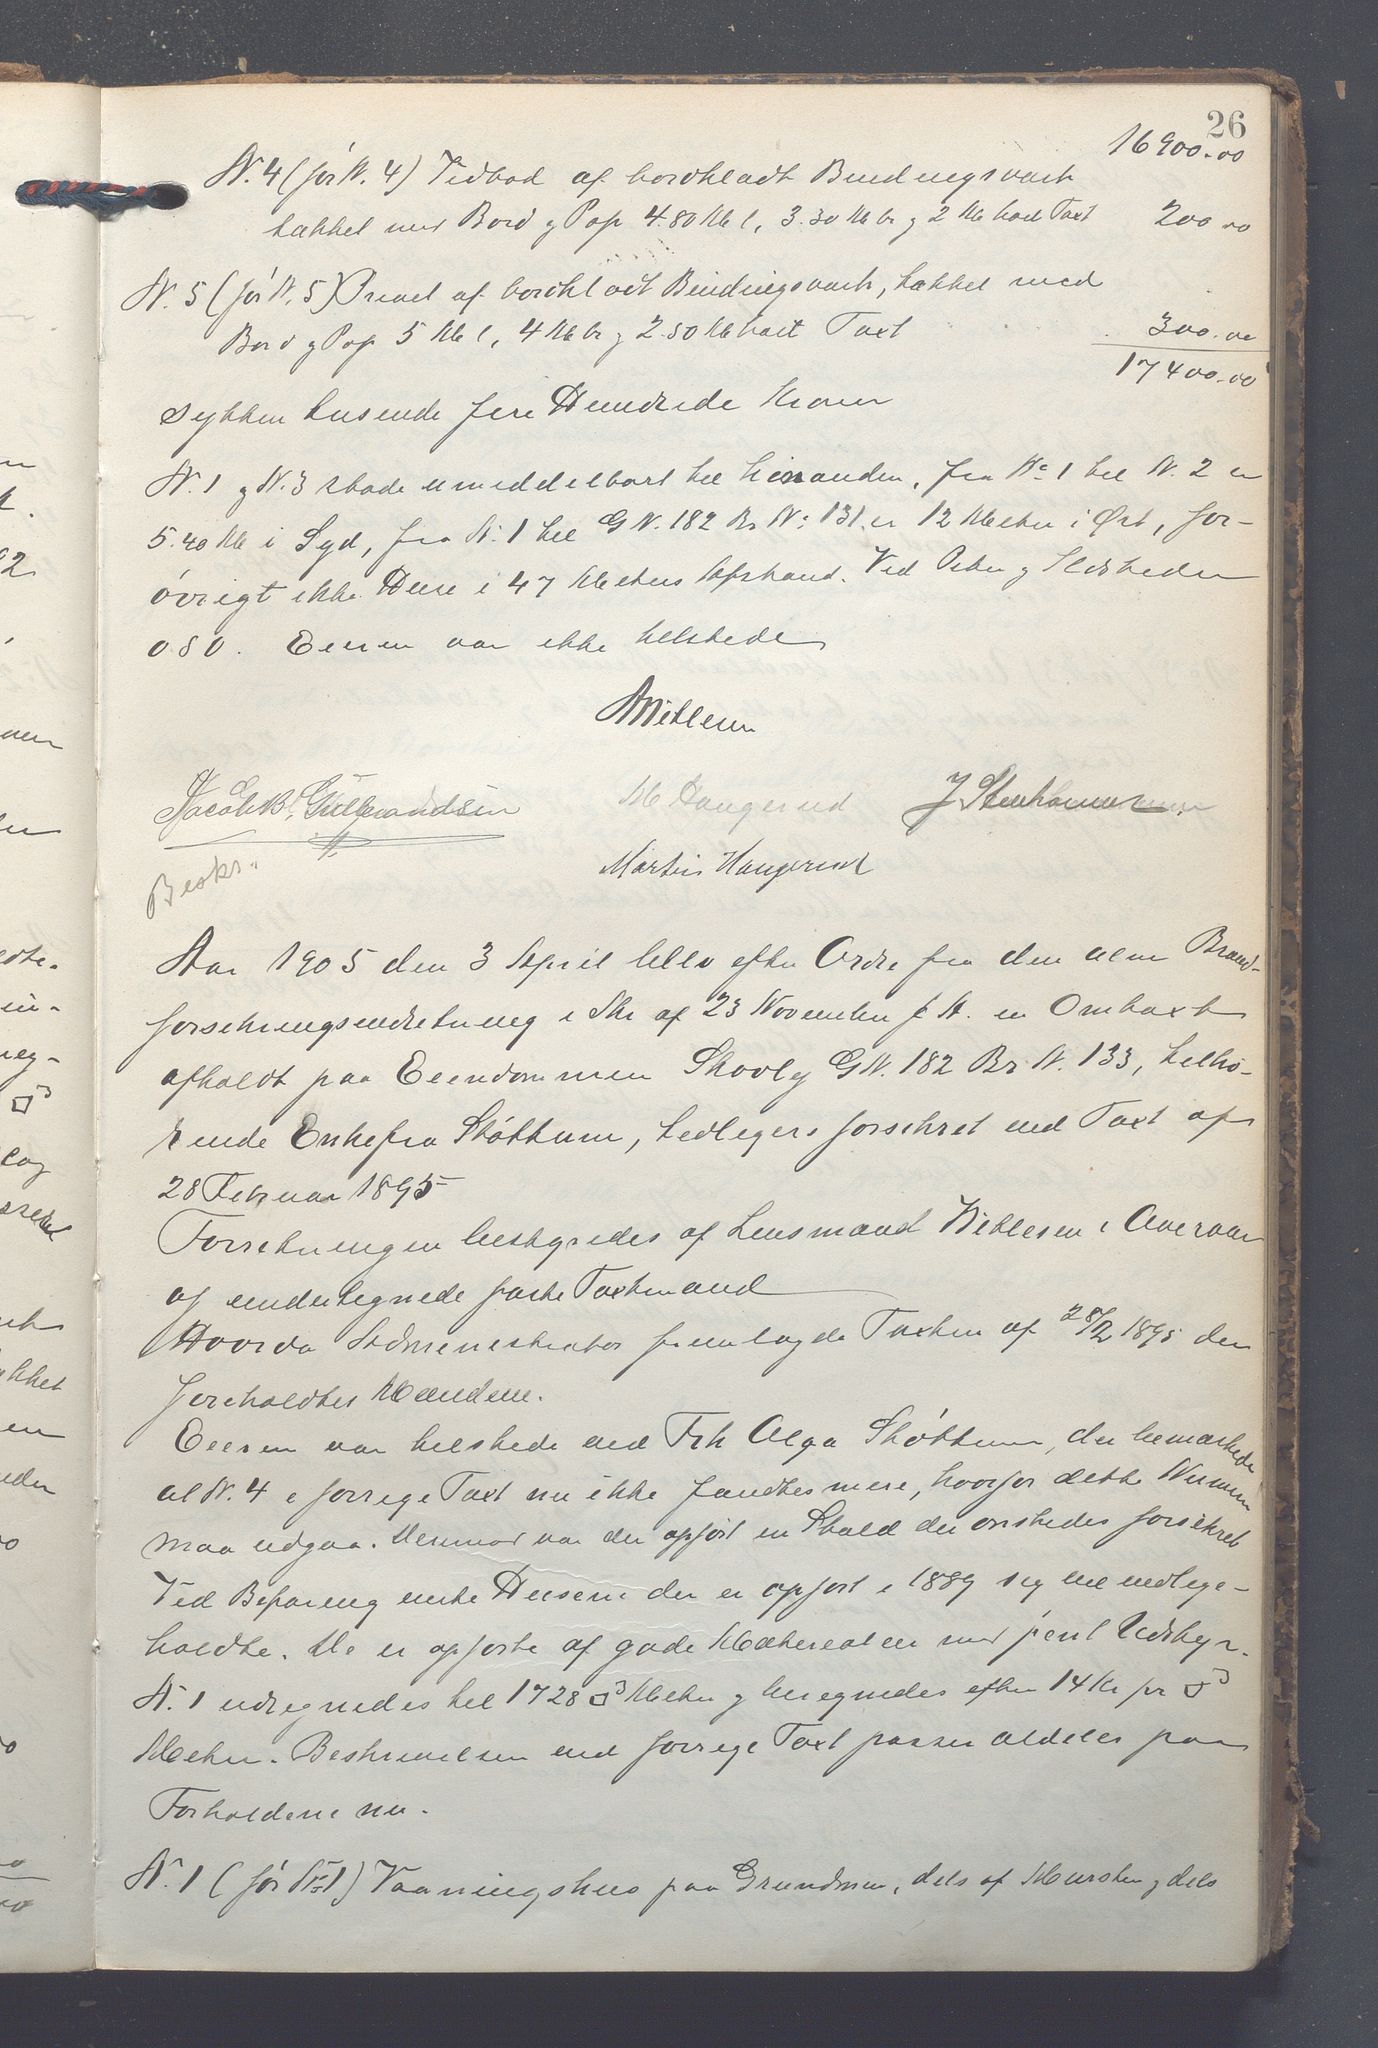 26
16900.00
N. 4 (før N. 4) Vedbod af bordklædt Bindingsværk
tækket med Bord og Pap 4.80 M l, 3.30 M br og 2 M høi Taxt 200.00
N. 5 (før N. 5) Privet af bordklædt Bindingsværk, tækket med
Bord og Pap 5 M l, 4 M br og 2.50 M høit Taxt 300.00
17400.00
sytten tusende fire Hundrede Kroner
N. 1 og N. 3 støde umiddelbart til hinanden, fra No 1 til N. 2 er
5.40 M i Syd, fra N. 1 til G N. 182 Br No 131 er 12 Meter i Øst, for-
øvrigt ikke Huse i 47 Meters Afstand. Ved Piber og Ildsteder
o s v. Eieren var ikke tilstede
Jacob B. Gulbrandsen M Haugerud J Stenhammer
Martin Haugerud
Beskr.
Aar 1905 den 3 April blev efter Ordre fra den alm Brand-
forsikringsindretning i Skr af 23 November f A. en Omtaxt
afholdt paa Eiendommen Skovly G N. 182 Br N. 133, tilhø-
rende Enkefru Støttum, tidligere forsikret ved Taxt af
28 Februar 1895
Forretningen bestyredes af Lensmand Wetlesen i
og undertegnede faste Taxtmænd
Hvorda Administrator fremlagde Taxten af 28/2 1895 der
foreholdtes Mændene.
Eieren var tilstede ved Frk Olga Støttum, der bemærkede
at N. 4 i forrige Taxt nu ikke fandtes mere, hvorfor dette Nummer
maa udgaa. Derimod var der opført en Stald der ønskedes forsikret
Ved Befaring Husene der er opført i 1889 sig vel vedlige-
holdte. De er opførte af gode Materialier med pent Udstyr.
N. 1 udregnedes til 1728 □3 Meter og beregnedes efter 14 Kr pr □3
Meter. Beskrivelsen ved forrige Taxt passer aldeles paa
Forholdene nu.
N. 1 (før No 1) Vaaningshus paa Grundmur, dels af Mursten og dels